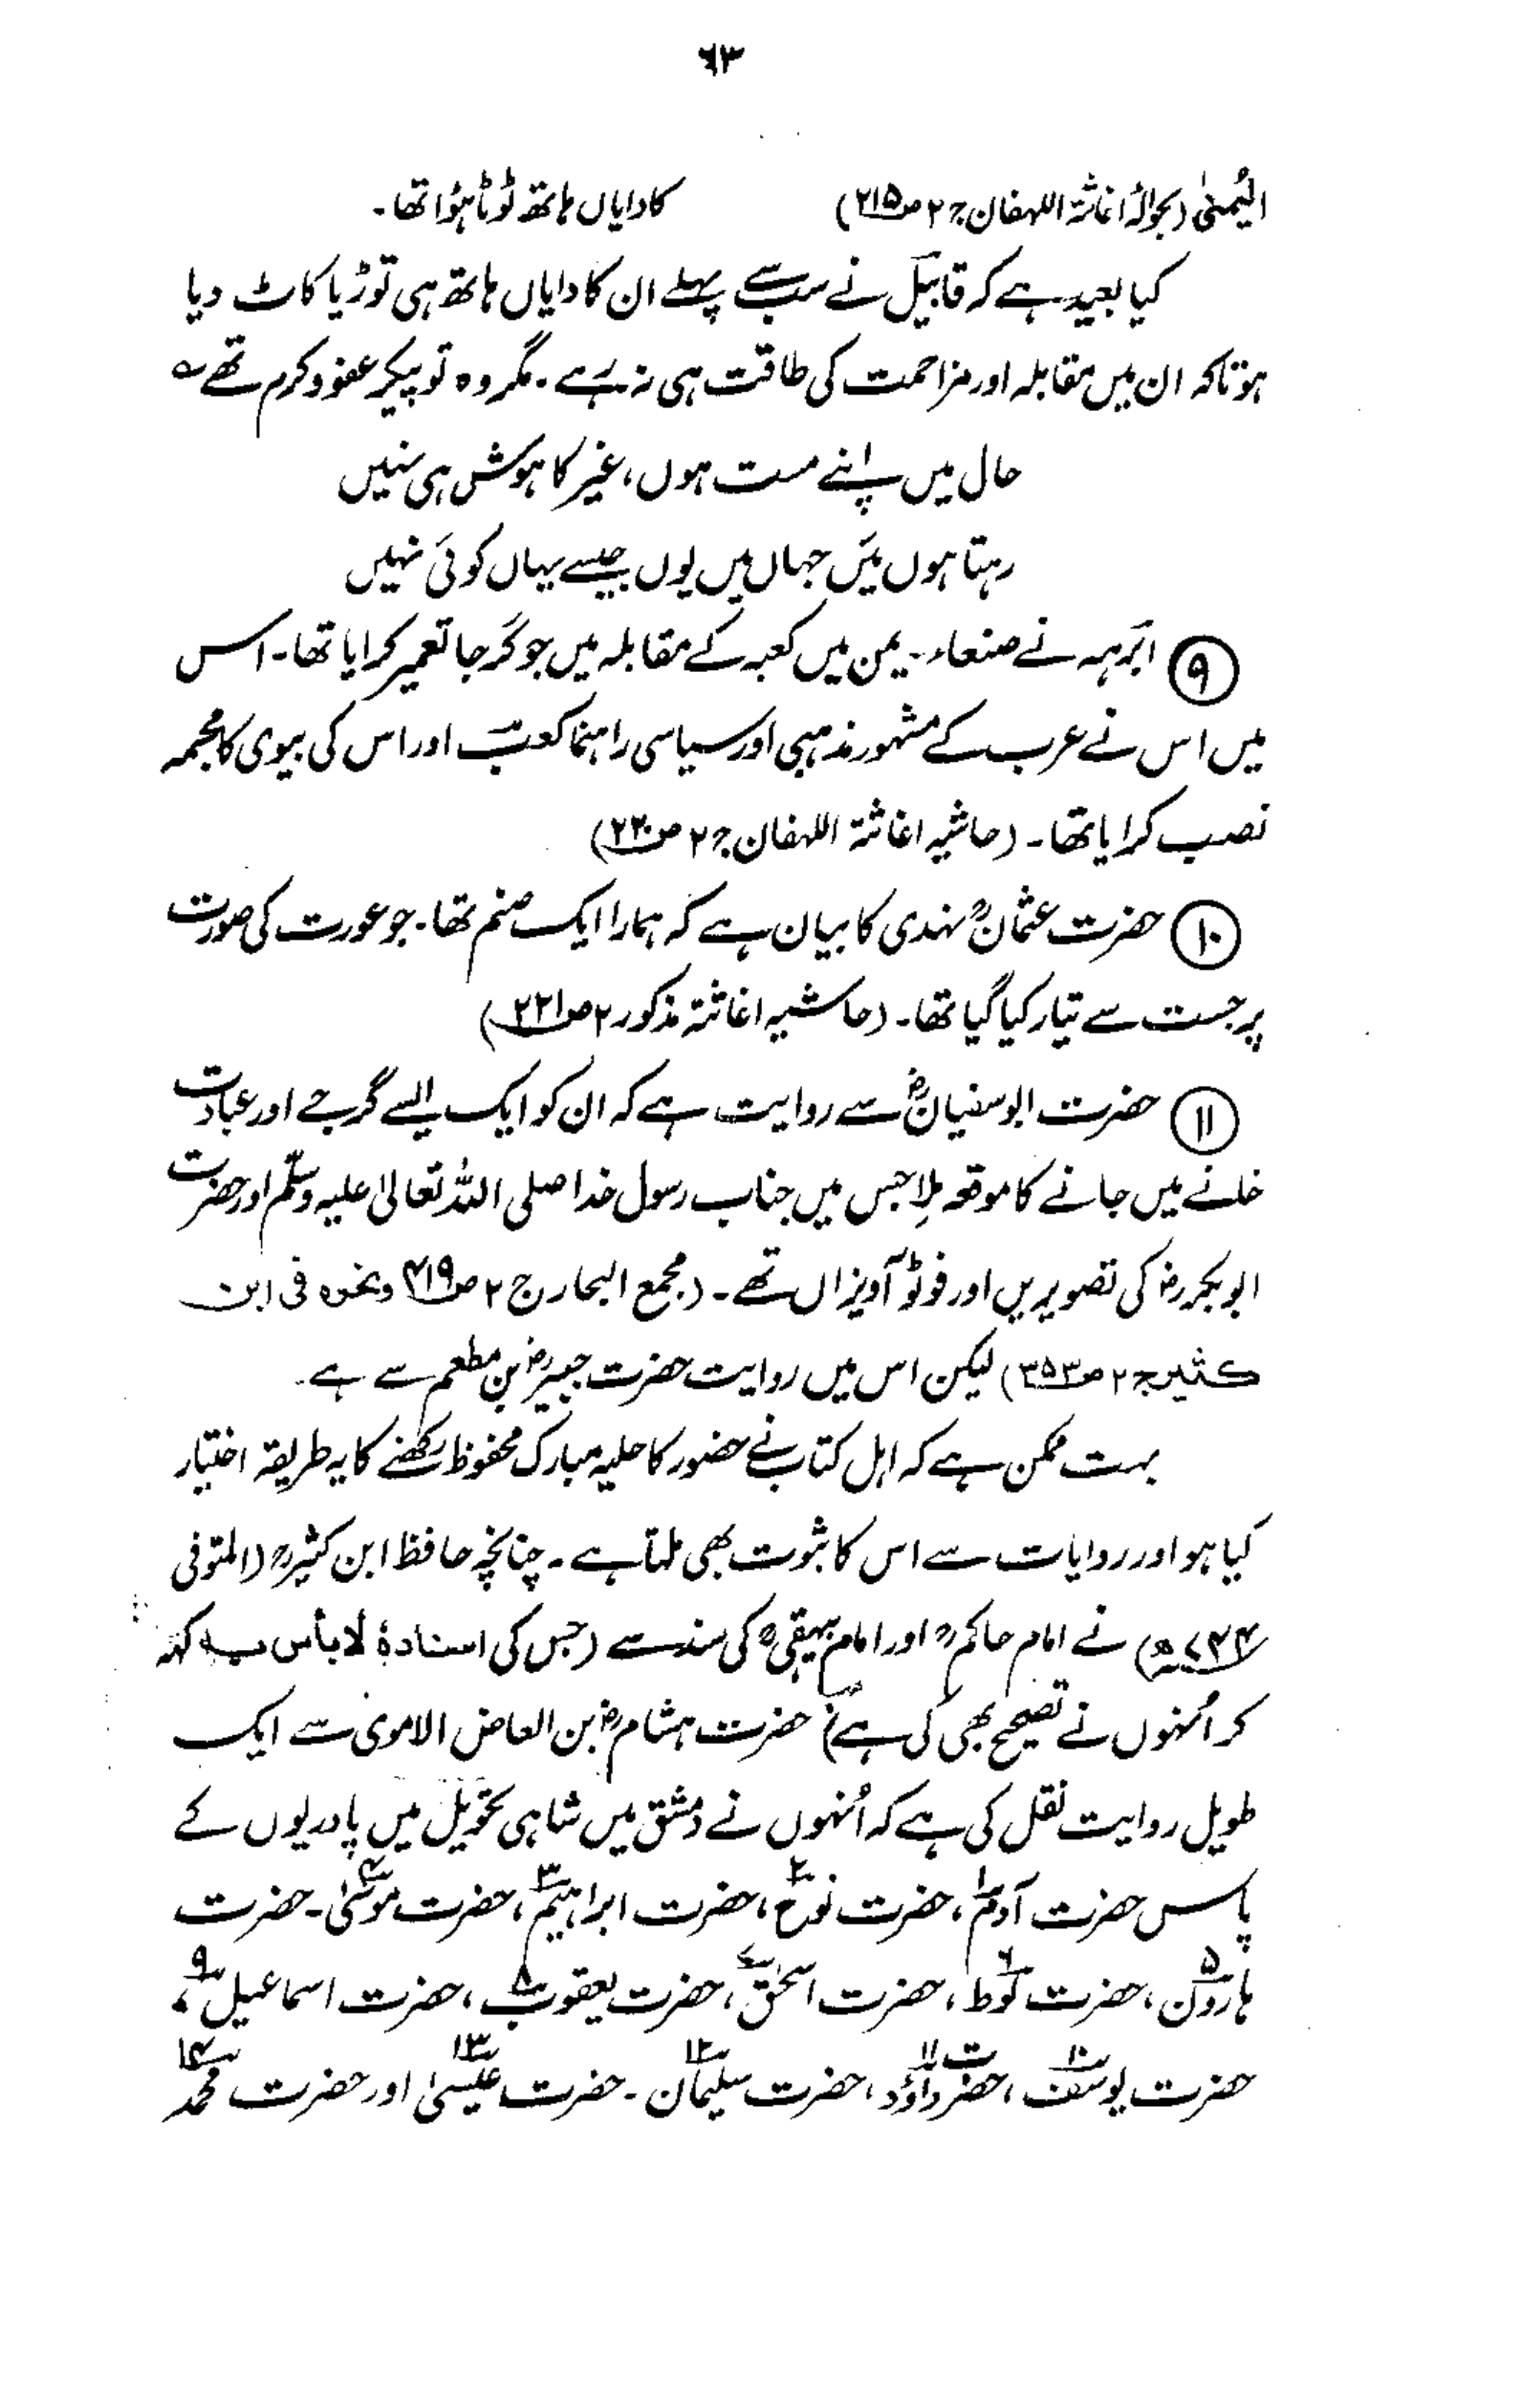 ٦٣
الیُمنیٰ (بحوالہ اغاثۃ اللہفان ج۲ ص۲۱۵) کا دایاں ہاتھ ٹوٹا ہوُا تھا۔
کیا بعید ہے کہ قابیل نے سب سے پہلے ان کا دایاں ہاتھ ہی توڑ یا کاٹ دیا
ہو تاکہ ان میں مقابلہ اور مزاحمت کی طاقت ہی نہ رہے۔ مگر وہ تو پیکر عفو و کرم تھے ؎
حال میں اپنے مست ہوں، غیر کا ہوش ہی نہیں
رہتا ہوں میَں جہاں میں یوں جیسے یہاں کوئی نہیں
⑨ ابرَہہ نے صنعاء۔ یمن میں کعبہ کے مقابلہ میں جو گرجا تعمیر کرایا تھا۔ اس
میں اس نے عرب کے مشہور مذہبی اور سیاسی راہنما کعب اور اس کی بیوی کا مجسمہ
نصب کرایا تھا۔ (حاشیہ اغاثۃ اللہفان ج۲ ص۲۲۰)
⑩ حضرت عثمانؒ نہدی کا بیان ہے کہ ہمارا ایک صنم تھا۔ جو عورت کی صورت
پر جست سے تیار کیا گیا تھا۔ (حاشیہ اغاثۃ مذکور ۲ ص۲۲۱)
⑪ حضرت ابوسفیانؓ سے روایت ہے کہ ان کو ایک ایسے گرجے اور عبادت
خانے میں جانے کا موقعہ مِلا جس میں جناب رسول خدا صلی اللہ تعالیٰ علیہ وسلّم اور حضرت
ابوبکرؓ کی تصویریں اور فوٹو آویزاں تھے۔ (مجمع البحار ج ۲ ص۴۱۹ ونحوہ فی ابن
کثیر ج۲ ص۳۵۳) لیکن اس میں روایت حضرت جبیرؓ بن مطعم سے ہے۔
بہت ممکن ہے کہ اہل کتاب نے حضور کا حلیہ مبارک محفوظ رکھنے کا یہ طریقہ اختیار
کیا ہو اور روایات سے اس کا ثبوت بھی ملتا ہے۔ چنانچہ حافظ ابن کثیرؒ (المتوفی
۷۷۴ھ) نے امام حاکمؒ اور امام بیہقیؒ کی سند سے (جس کی اسنادہٗ لا بأس بہ کہہ
کر اُنہوں نے تصحیح بھی کی ہے) حضرت ہشامؓ بن العاض الاموی سے ایک
طویل روایت نقل کی ہے کہ اُنہوں نے دمشق میں شاہی تحویل میں پادریوں کے
پاس حضرت آدمؑ ۱، حضرت نوحؑ ۲، حضرت ابراہیمؑ ۳، حضرت موسیٰؑ ۴۔ حضرت
ہارونؑ ۵، حضرت لوطؑ ۶، حضرت اسحٰقؑ ۷، حضرت یعقوبؑ ۸، حضرت اسماعیلؑ ۹،
حضرت یوسفؑ ۱۰، حضرت داؤد ۱۱، حضرت سلیمان ۱۲۔ حضرت عیسیٰ ۱۳ اور حضرت محمد ۱۴